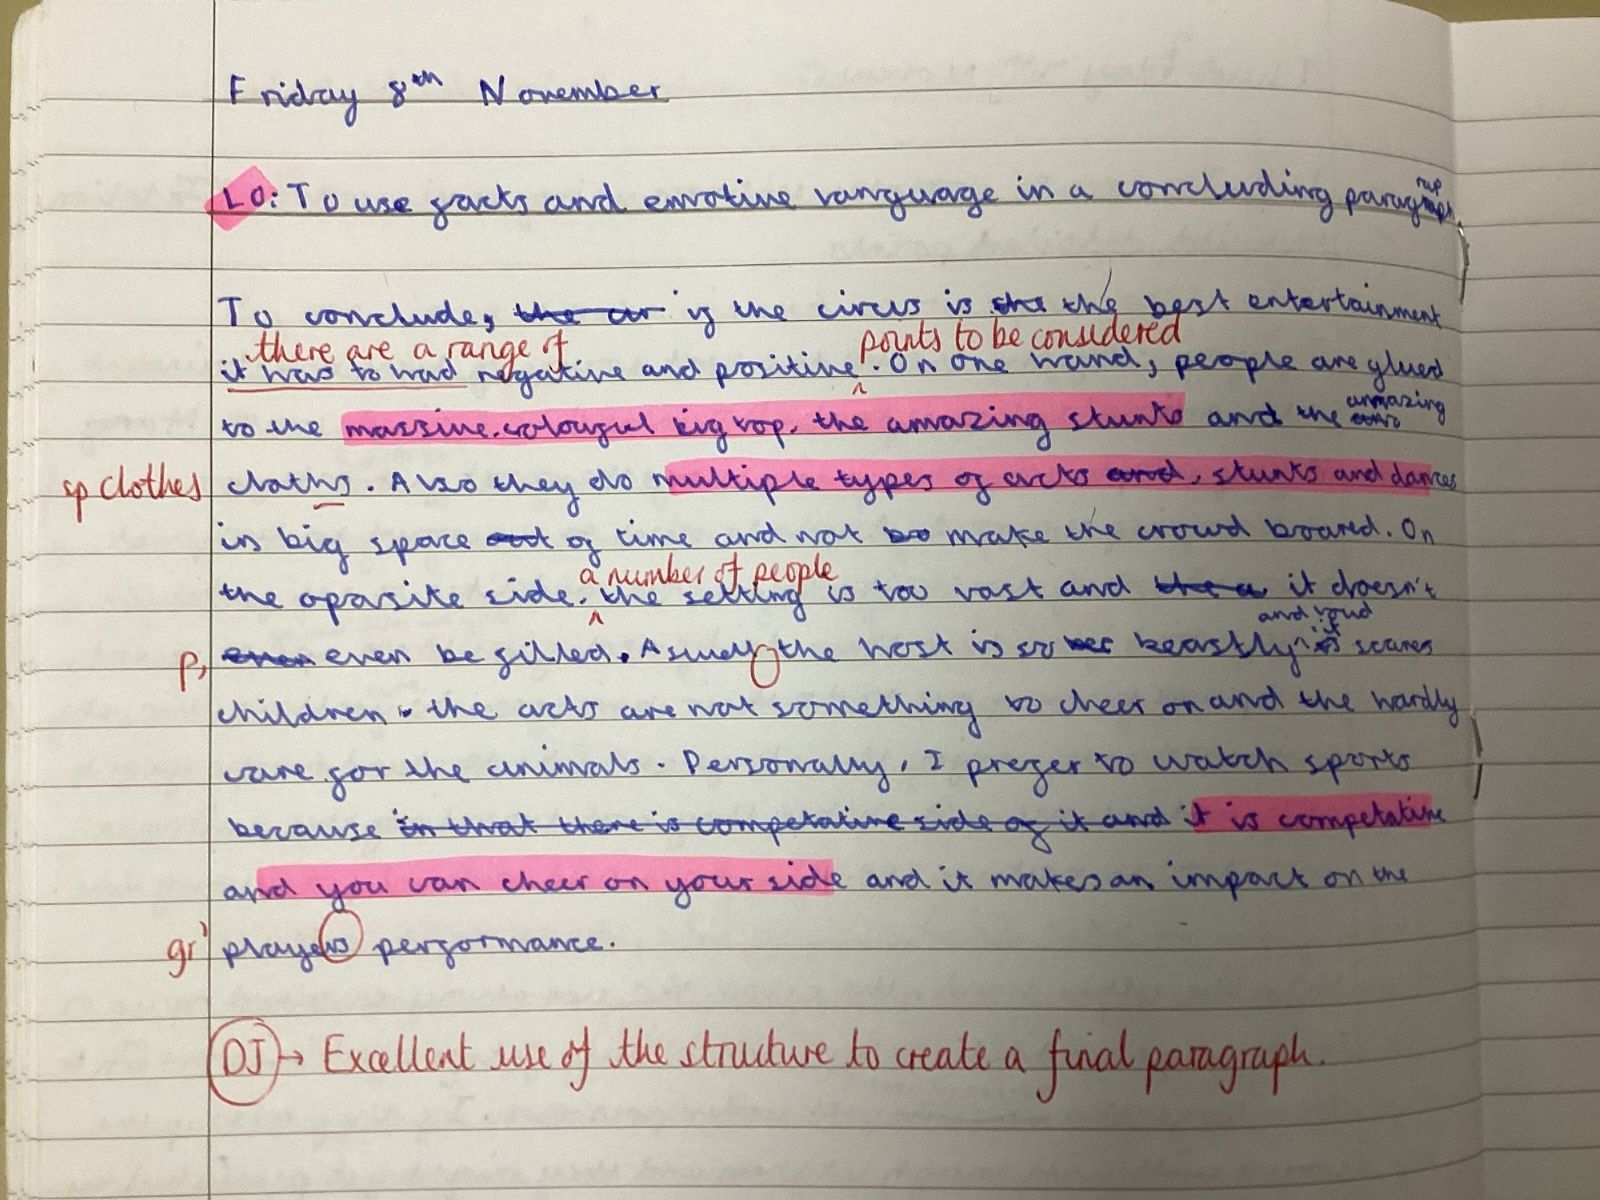 Friday 8th November
LO: To use facts and emotive language in a concluding paragraph
rap
To conclude, the cir if the circus is the best entertainment
there are a range of points to be considered
it has to had negative and positive. On one hand, people are glued
to the massive, colourful big top, the amazing stunts and the amazing
sp clothes cloths. Also they do multiple types of acts and, stunts and dances
in big space of time and not make the crowd boared. On
a number of people
the oposite side, the setting is too vast and it doesn't
and loud
p, even even be filled. the host is so beastly it scares
children. the acts are not something to cheer on and the hardly
care for the animals. Personally, I prefer to watch sports
because in that there is competative side of it and it is competative
and you can cheer on your side and it makes an impact on the
gr players performance.
DJ → Excellent use of the structure to create a final paragraph.